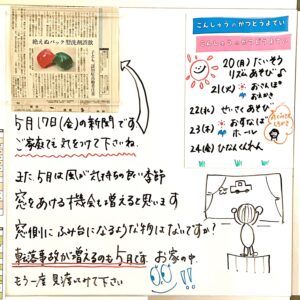 絶えぬパック型洗剤誤飲
5月17日(金)の新聞です。
ご家庭でも気をつけて下さいね。
また、5月は風が気持ちの良い季節
窓をあける機会も増えると思います
窓側にふみ台になるような物はないですか?
転落事故が増えるのも5月です。お家の中、
もう一度見渡してみて下さい
こんしゅうのかつどうよてい
こんしゅうのかつどうよてい
20(月)たいそう
リズムあそび♪
21(火)おさんぽ
おえかき
22(水)せいさくあそび
23(木)おすなば
ホール
24(金)ひなんくんれん